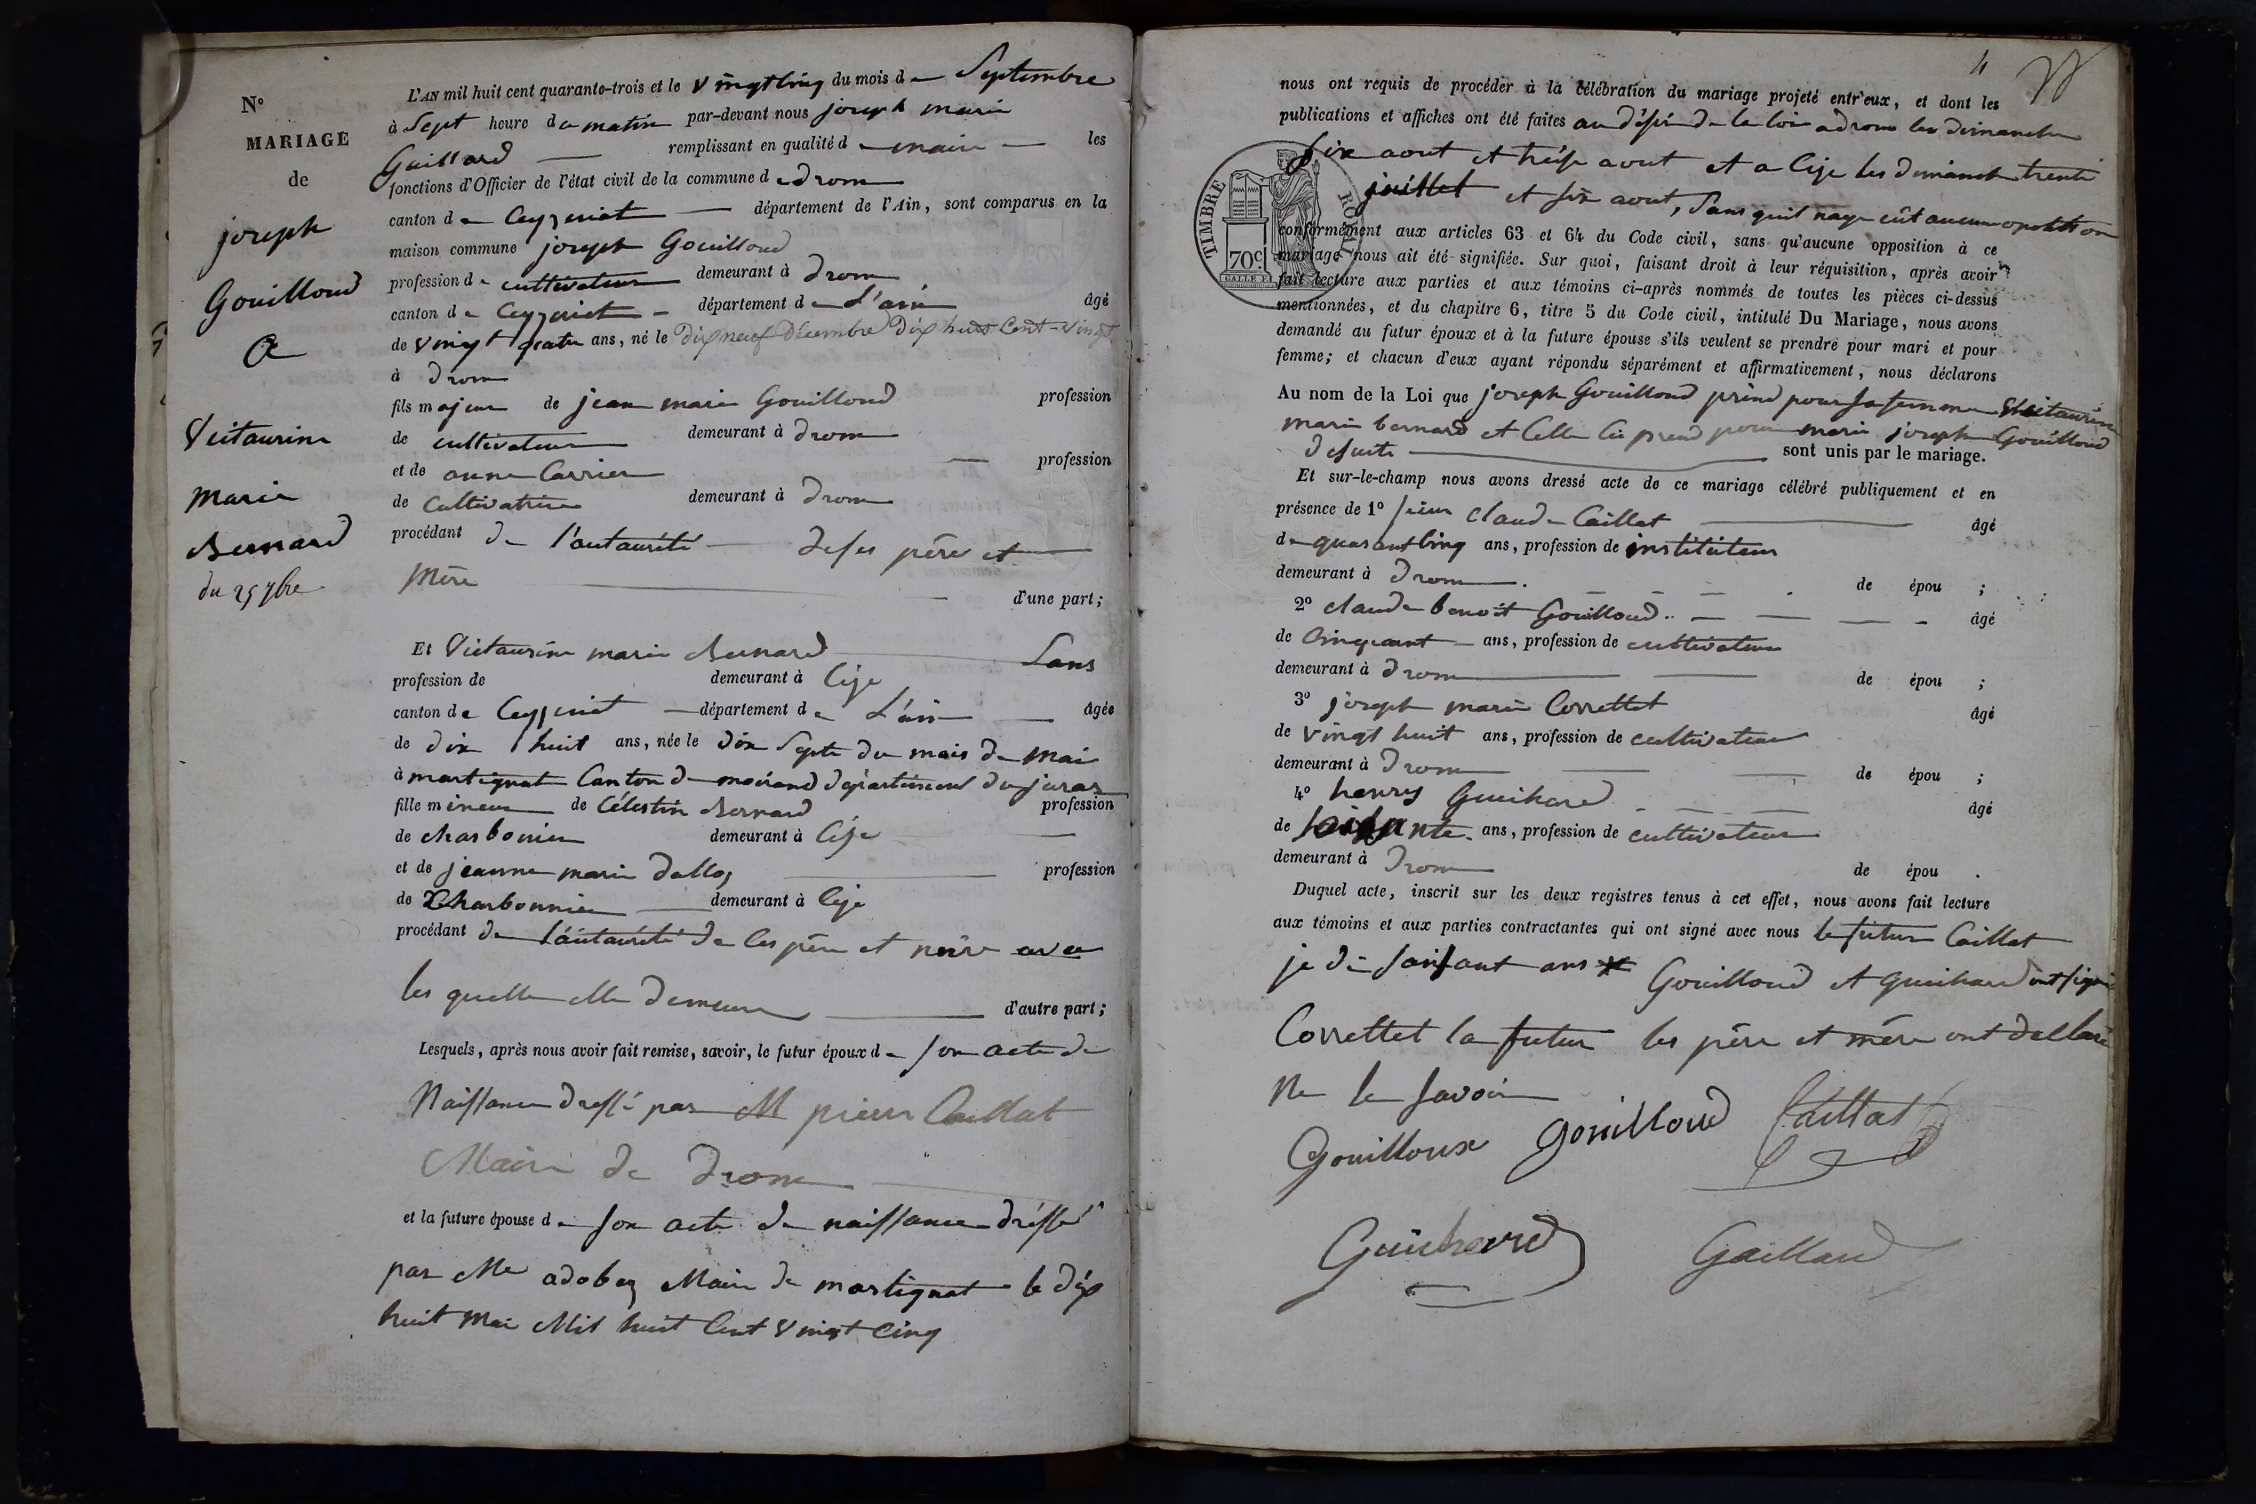 N°
MARIAGE
de
joseph
Gouilloud
&
Victaurine
marie
Bernard
du 25 7bre
L'AN mil huit cent quarante-trois et le vingtcinq du mois de Septembre
à Sept heure du matin par-devant nous joseph marie
Gaillard remplissant en qualité de maire les
fonctions d'Officier de l'état civil de la commune de drom
canton de Ceyzeriat département de l'Ain, sont comparus en la
maison commune joseph Gouilloud
profession de cultivateur demeurant à drom
canton de Ceyzeriat département de L'ain âgé
de vingt quatre ans, né le dix neuf décembre dix huit Cent-vingt
à drom
fils majeur de jean marie Gouilloud profession
de cultivateur demeurant à drom
et de anne Carrier profession
de Cultivatrice demeurant à drom
procédant de l'autaurité de ses père et
Mère d'une part;
Et Victaurine marie Bernard Sans
profession de demeurant à Cize
canton de Ceyzeriat département de L'ain âgée
de dix huit ans, née le dix Septe du mois de mai
à martignat Canton de moirand département du juras
fille mineur de Célestin Bernard profession
de charbonier demeurant à Cize
et de jeanne marie dalloz profession
de Charbonnier demeurant à Cize
procédant de l'autaurité de Ces père et mère avec
les quelle elle demeure d'autre part;
Lesquels, après nous avoir fait remise, savoir, le futur époux de son acte de
Naissance dressé par M pierre Caillat
Maire de drom
et la future épouse de son acte de naissance dréssé
par Me adobez Maire de martignat le dix
huit mai Mil huit Cent vingt Cinq
4
nous ont requis de procéder à la célébration du mariage projeté entr'eux, et dont les
publications et affiches ont été faites au désir de la loi a drom les dimanche
six aout et treise aout et a Cize les dimanch trente
juillet et six aout, Sans quil naye eût aucune oposition
TIMBRE ROYAL
70c
conformément aux articles 63 et 64 du Code civil, sans qu'aucune opposition à ce
mariage nous ait été signifiée. Sur quoi, faisant droit à leur réquisition, après avoir
fait lecture aux parties et aux témoins ci-après nommés de toutes les pièces ci-dessus
mentionnées, et du chapitre 6, titre 5 du Code civil, intitulé Du Mariage, nous avons
demandé au futur époux et à la future épouse s'ils veulent se prendre pour mari et pour
femme; et chacun d'eux ayant répondu séparément et affirmativement, nous déclarons
Au nom de la Loi que joseph Gouilloud prend pour sa femme Victaurine
marie bernard et Celle Ci prend pour mari joseph Gouilloud
desuite sont unis par le mariage.
Et sur-le-champ nous avons dressé acte de ce mariage célébré publiquement et en
présence de 1° sieur Claude Caillat âgé
de quarantcinq ans, profession de instituteur
demeurant à drom de épou ;
2° claude benoit Gouilloud âgé
de Cinquant ans, profession de cultivateur
demeurant à drom de épou ;
3° joseph marie Correttet âgé
de vingt huit ans, profession de cultivateur
demeurant à drom de épou ;
4° henry Guichard âgé
de soissante ans, profession de cultivateur
demeurant à drom de épou .
Duquel acte, inscrit sur les deux registres tenus à cet effet, nous avons fait lecture
aux témoins et aux parties contractantes qui ont signé avec nous le futur Caillat
je di soissant ans Gouilloud et guichard ont signé
Correttet la futur les père et mére ont déclaré
Ne le savoir
Gouilloux Gouilloud Caillat
Guichard Gaillard